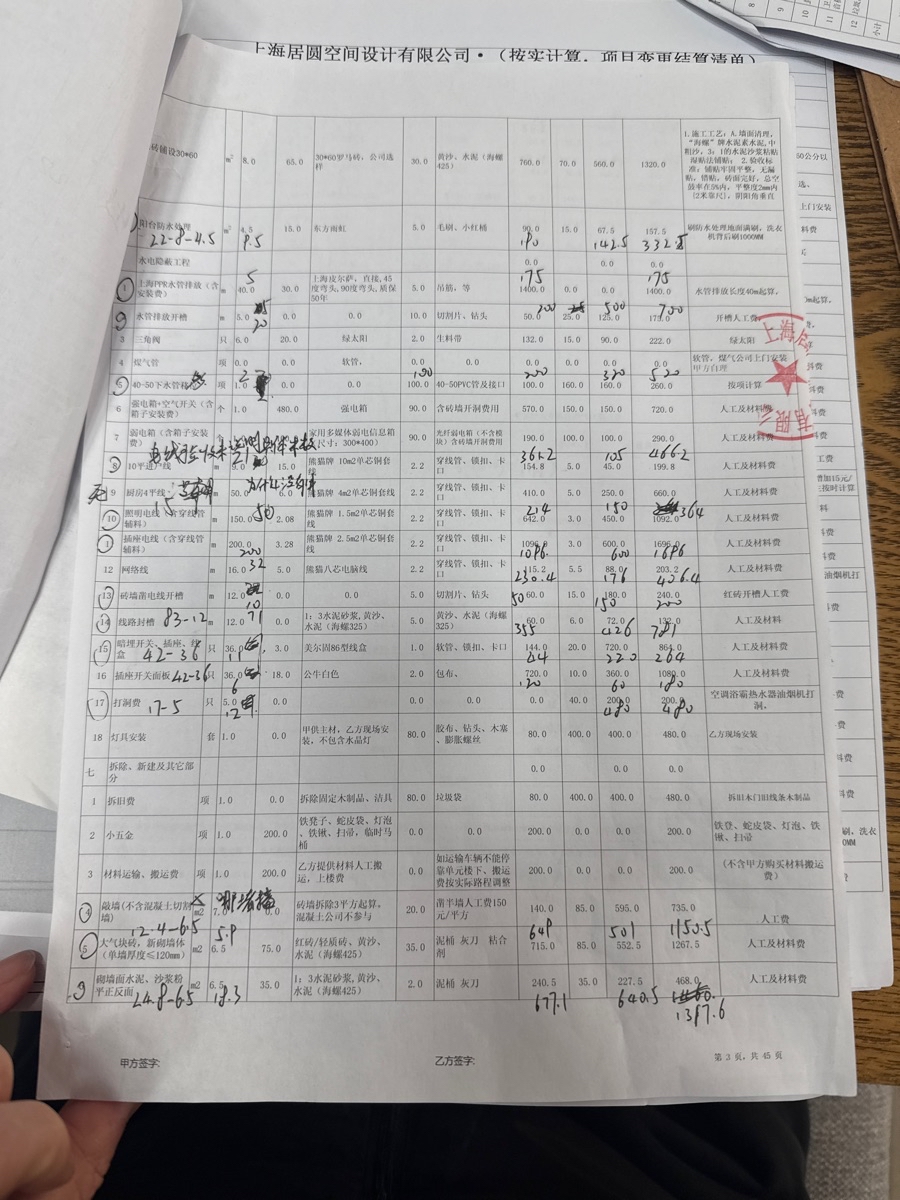 上海居圆空间设计有限公司·（按实计算，项目变更结算清单）
砖铺设30*60 m² 8.0 65.0 30*60罗马砖：公司选样 30.0 黄沙、水泥（海螺425） 760.0 70.0 560.0 1320.0 1.施工工艺：A.墙面清理，“海螺”牌水泥素水泥,中粗沙，3：1的水泥沙浆粘贴湿贴法铺贴； 2.验收标准：铺贴牢固平整，无漏贴，错贴，砖面完好，总空鼓率在5%内，平整度2mm内（2米靠尺），阴阳角垂直
阳台防水处理 m² 4.5 15.0 东方雨虹 5.0 毛刷、小红桶 90.0 15.0 67.5 157.5 刷防水处理地面满刷，洗衣机背后刷1000MM
22-8-4.5 9.5 190 142.5 332.5
水电隐蔽工程 0.0 0.0 0.0
5 175 175
1 上海PPR水管排放（含安装费） m 40.0 30.0 上海皮尔萨，直接,45度弯头,90度弯头,质保50年 5.0 吊筋，等 1400.0 0.0 0.0 1400.0 水管排放长度40m起算，
水管排放开槽 m 5.0 0.0 0.0 10.0 切割片、钻头 50.0 25.0 125.0 175.0 开槽人工费，
20 200 500 700
3 三角阀 只 6.0 20.0 绿太阳 2.0 生料带 132.0 15.0 90.0 222.0 绿太阳
4 煤气管 项 0.0 0.0 软管， 0.0 0.0 0.0 0.0 0.0 0.0 软管，煤气公司上门安装甲方自理
2 100 200 320 520
5 40-50下水管 项 1.0 0.0 0.0 100.0 40-50PVC管及接口 100.0 160.0 160.0 260.0 按项计算
6 强电箱+空气开关（含箱子安装费） 个 1.0 480.0 强电箱 90.0 含砖墙开洞费用 570.0 150.0 150.0 720.0 人工及材料费
7 弱电箱（含箱子安装费） 家用多媒体弱电信息箱（尺寸：300*400） 90.0 光纤弱电箱（不含模块）含砖墙开洞费用 190.0 100.0 100.0 290.0 人工及材料费
361.2 105 466.2
8 10平进户线 m 9.0 15.0 熊猫牌 10m2单芯铜套线 2.2 穿线管、锁扣、卡口 154.8 5.0 45.0 199.8 人工及材料费
9 厨房4平线 m 50.0 6.0 熊猫牌 4m2单芯铜套线 2.2 穿线管、锁扣、卡口 410.0 5.0 250.0 660.0 人工及材料费
15 50 214 150 364
10 照明电线（含穿线管辅料） m 150.0 2.08 熊猫牌 1.5m2单芯铜套线 2.2 穿线管、锁扣、卡口 642.0 3.0 450.0 1092.0 人工及材料费
插座电线（含穿线管辅料） m 200.0 3.28 熊猫牌 2.5m2单芯铜套线 2.2 穿线管、锁扣、卡口 1096.0 3.0 600.0 1696.0 人工及材料费
200 1096 600 1696
12 网络线 m 16.0 5.0 熊猫八芯电脑线 2.2 穿线管、锁扣、卡口 115.2 5.5 88.0 203.2 人工及材料费
32 230.4 176 406.4
13 砖墙凿电线开槽 m 12.0 0.0 0.0 5.0 切割片、钻头 60.0 15.0 180.0 240.0 红砖开槽人工费
10 50 150 200
14 线路封槽 83-12 m 12.0 0.0 1：3水泥砂浆,黄沙、水泥（海螺325） 5.0 黄沙、水泥（海螺325） 60.0 6.0 72.0 132.0 人工及材料
71 355 426 781
15 暗埋开关、插座、线盒 只 36.0 3.0 美尔固86型线盒 1.0 软管、锁扣、卡口 144.0 20.0 720.0 864.0 人工及材料费
42-36 11 44 220 264
16 插座开关面板 42-36 只 36.0 18.0 公牛白色 2.0 包布、 720.0 10.0 360.0 1080.0 人工及材料费
6 120 60 180
17 打洞费 17-5 只 5.0 0.0 0.0 0.0 0.0 0.0 40.0 200.0 200.0 空调浴霸热水器油烟机打洞、
12 480 480
18 灯具安装 套 1.0 0.0 甲供主材，乙方现场安装，不包含水晶灯 80.0 胶布、钻头、木塞、膨胀螺丝 80.0 400.0 400.0 480.0 乙方现场安装
七 拆除、新建及其它部分 0.0 0.0 0.0
1 拆旧费 项 1.0 0.0 拆除固定木制品、洁具 80.0 垃圾袋 80.0 400.0 400.0 480.0 拆旧木门旧线条木制品
2 小五金 项 1.0 200.0 铁凳子、蛇皮袋、灯泡、铁锹、扫帚，临时马桶 0.0 0.0 200.0 0.0 0.0 200.0 铁登、蛇皮袋、灯泡、铁锹、扫帚
3 材料运输、搬运费 项 1.0 200.0 乙方提供材料人工搬运，上楼费 0.0 如运输车辆不能停靠单元楼下、搬运费按实际路程调整 200.0 0.0 0.0 200.0 （不含甲方购买材料搬运费）
4 敲墙(不含混凝土切割墙) m2 7.0 0.0 砖墙拆除3平方起算，混凝土公司不参与 20.0 凿半墙人工费150元/平方 140.0 85.0 595.0 735.0 人工费
12.4-6.5 5.9 649 501 1150.5
5 大气块砖，新砌墙体（单墙厚度≤120mm） m2 6.5 75.0 红砖/轻质砖、黄沙、水泥（海螺425） 35.0 泥桶 灰刀 粘合剂 715.0 85.0 552.5 1267.5 人工及材料费
砌墙面水泥、沙浆粉平正反面 m2 6.5 35.0 1：3水泥砂浆,黄沙、水泥（海螺425） 2.0 泥桶 灰刀 240.5 35.0 227.5 468.0 人工及材料费
24.8-6.5 18.3 677.1 640.5 1317.6
甲方签字: 乙方签字: 第 3 页，共 45 页